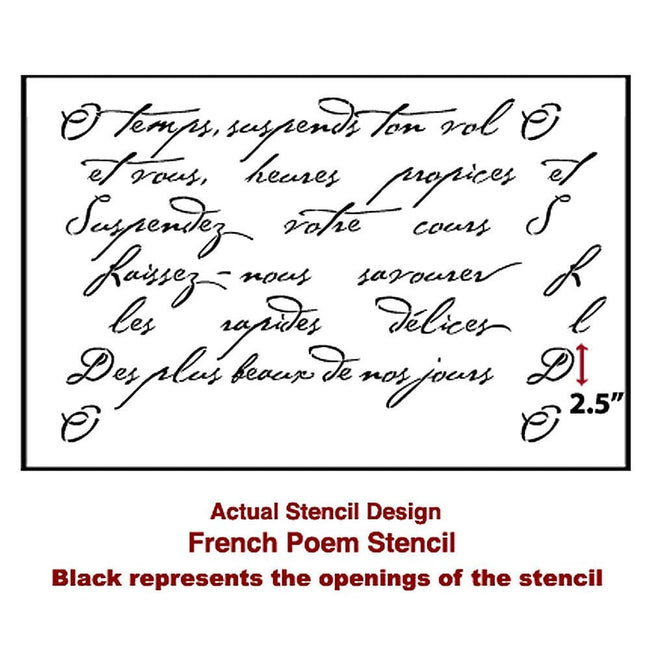 O temps, suspends ton vol O
et vous, heures propices et
Suspendez votre cours S
Laissez-nous savourer L
les rapides délices l
Des plus beaux de nos jours D
2.5”
O O
Actual Stencil Design
French Poem Stencil
Black represents the openings of the stencil